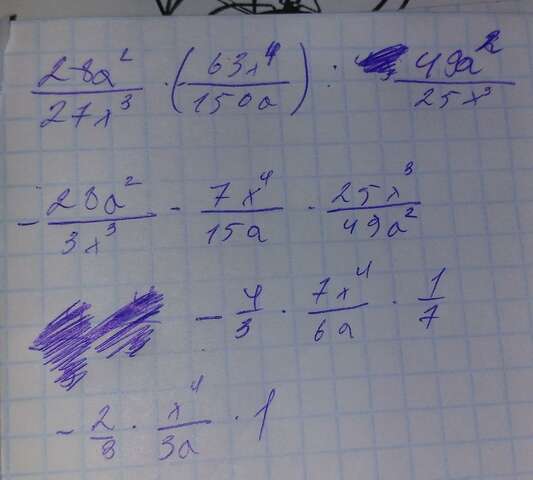 28a²/27x³ · (63x⁴/150a) : 49a²/25x³
- 28a²/3x³ - 7x⁴/15a · 25x³/49a²
- 4/3 · 7x⁴/6a · 1/7
- 2/3 · x⁴/3a · 1